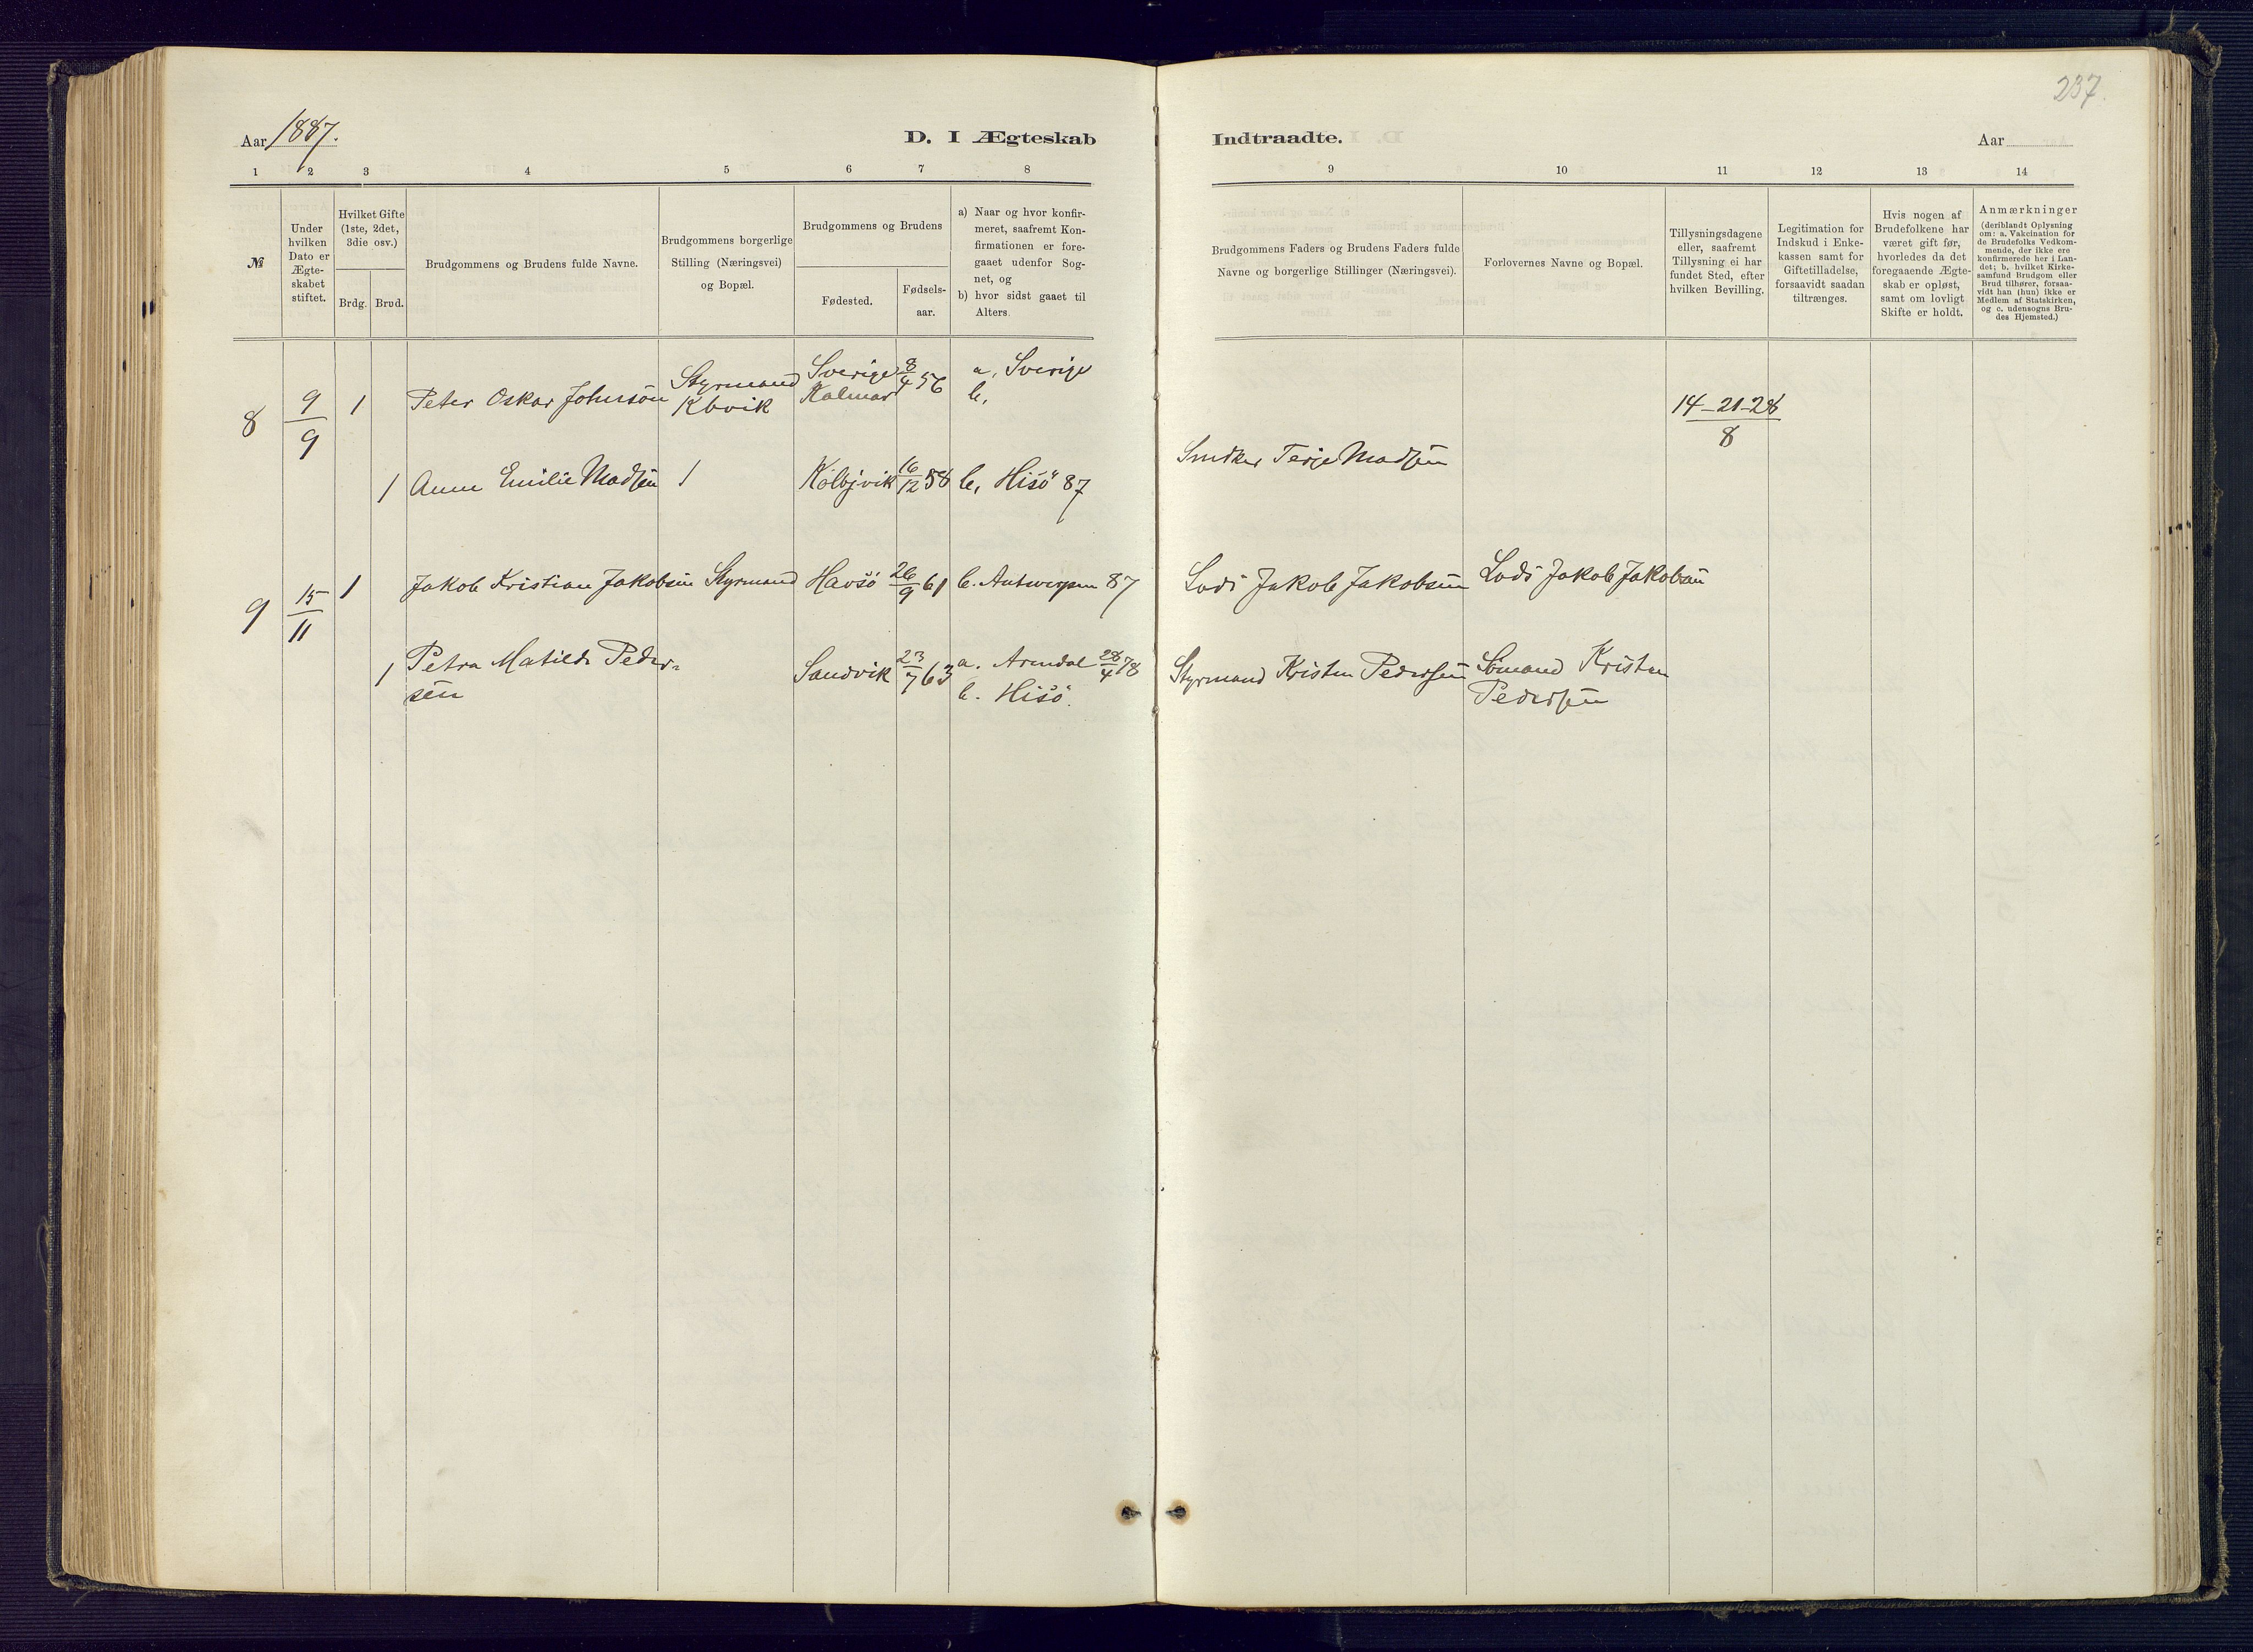 237.
Aar 1887.
D. I Ægteskab
Indtraadte.
Aar
1 2 3 4 5 6 7 8
9 10 11 12 13 14
№
Under hvilken Dato er Ægte-skabet stiftet.
Hvilket Gifte (1ste, 2det, 3die osv.)
Brdg. Brud.
Brudgommens og Brudens fulde Navne.
Brudgommens borgerlige Stilling (Næringsvei) og Bopæl.
Brudgommens og Brudens
Fødested.
Fødsels-aar.
a) Naar og hvor konfir-meret, saafremt Kon-firmationen er fore-gaaet udenfor Sog-net, og
b) hvor sidst gaaet til Alters.
Brudgommens Faders og Brudens Faders fulde Navne og borgerlige Stillinger (Næringsvei).
Forlovernes Navne og Bopæl.
Tillysningsdagene eller, saafremt Tillysning ei har fundet Sted, efter hvilken Bevilling.
Legitimation for Indskud i Enke-kassen samt for Giftetilladelse, forsaavidt saadan tiltrænges.
Hvis nogen af Brudefolkene har været gift før, hvorledes da det foregaaende Ægte-skab er opløst, samt om lovligt Skifte er holdt.
Anmærkninger (deriblandt Oplysning om: a. Vakcination for de Brudefolks Vedkom-mende, der ikke ere konfirmerede her i Lan-det; b. hvilket Kirke-samfund Brudgom eller Brud tilhører, forsaa-vidt han (hun) ikke er Medlem af Statskirken, og c. udensogns Bru-des Hjemsted.)
8 9/9 1 Peter Oskar Johnsön Styrmand Kbvik Sverige Kalmar 8/4 56 a, Sverige b, 14-21-28/8
1 Anne Emilie Madsen 1 Kolbjvik 16/12 58 b, Hisö 87 Snedker Terje Madsen
9 15/11 1 Jakob Kristian Jakobsen Styrmand Havsö 26/9 61 b. Antwerpen 87 Lods Jakob Jakobsen Lods Jakob Jakobsen
1 Petra Matilde Peder-sen Sandvik 23/7 63 a. Arendal 28/4 78 b. Hisö. Styrmand Kristen Pedersen Sömand Kristen Pedersen